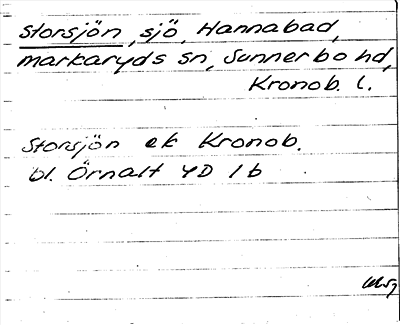 Storsjön, sjö, Hannabad,
Markaryds sn, Sunnerbo hd,
Kronob. l.
Storsjön ek Kronob.
bl. Örnalt 4D 1b